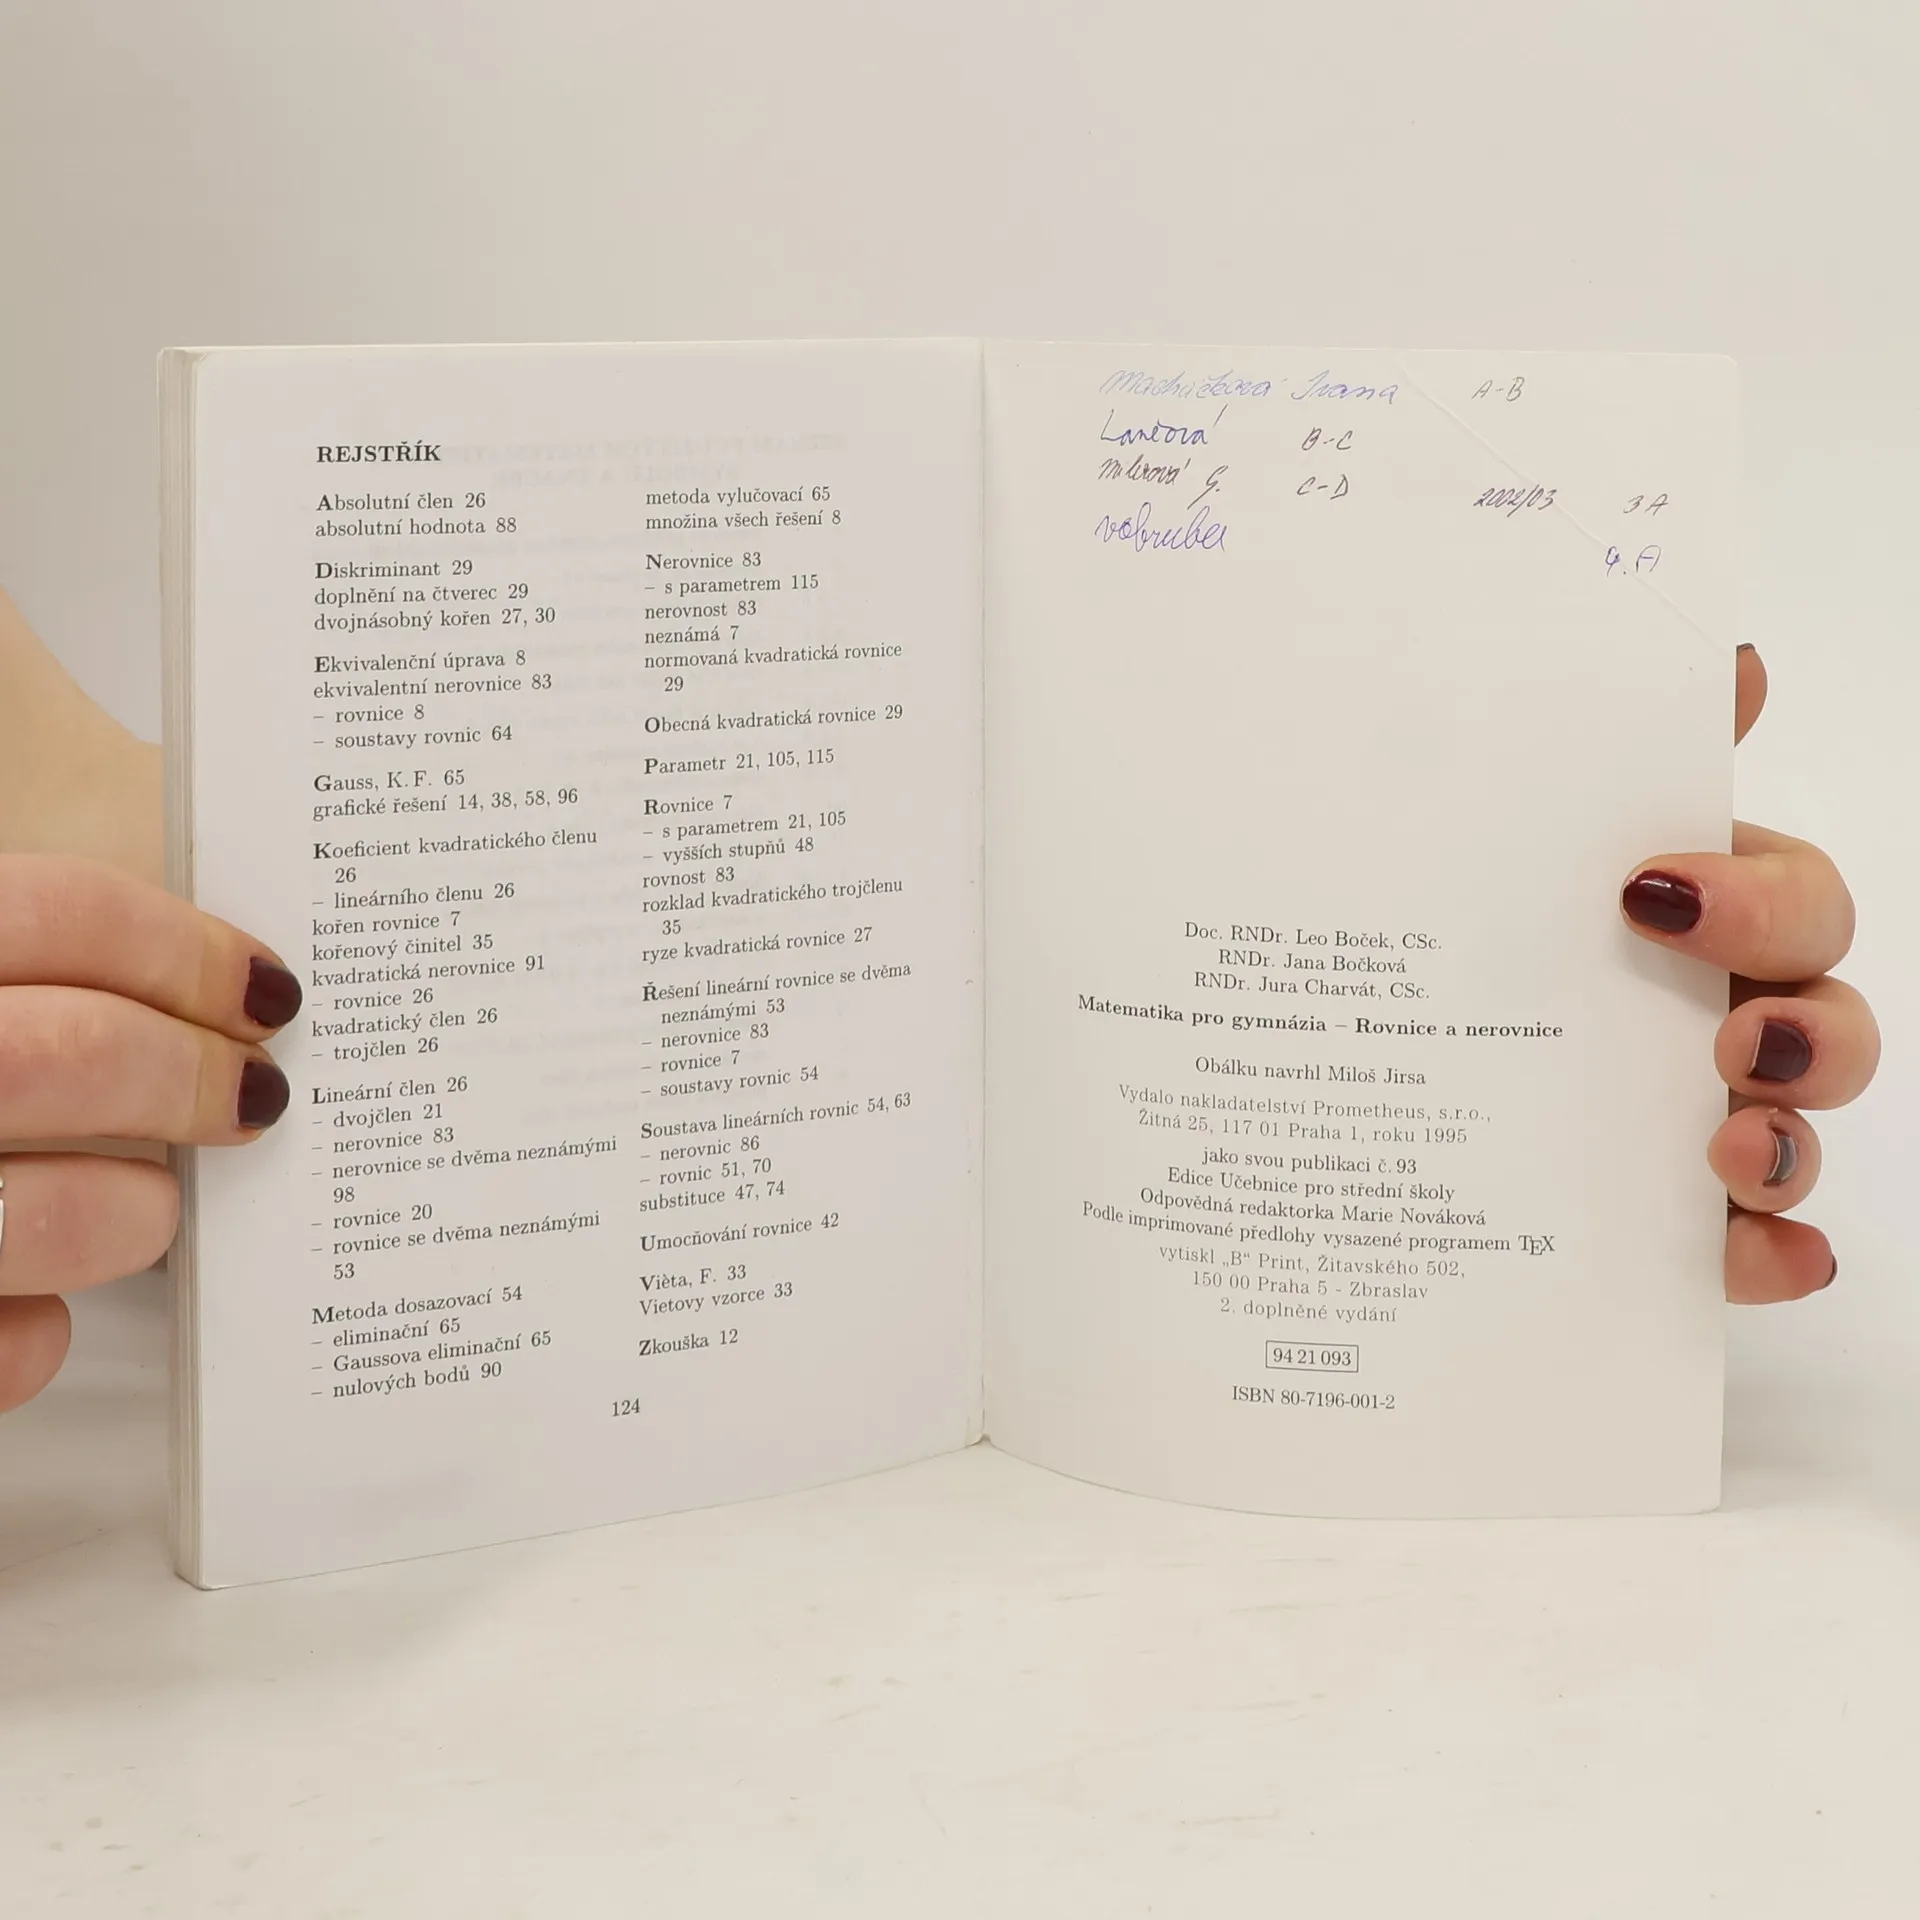 REJSTŘÍK
Absolutní člen 26
absolutní hodnota 88
Diskriminant 29
doplnění na čtverec 29
dvojnásobný kořen 27, 30
Ekvivalenční úprava 8
ekvivalentní nerovnice 83
– rovnice 8
– soustavy rovnic 64
Gauss, K. F. 65
grafické řešení 14, 38, 58, 96
Koeficient kvadratického členu
26
– lineárního členu 26
kořen rovnice 7
kořenový činitel 35
kvadratická nerovnice 91
– rovnice 26
kvadratický člen 26
– trojčlen 26
Lineární člen 26
– dvojčlen 21
– nerovnice 83
– nerovnice se dvěma neznámými
98
– rovnice 20
– rovnice se dvěma neznámými
53
Metoda dosazovací 54
– eliminační 65
– Gaussova eliminační 65
– nulových bodů 90
metoda vylučovací 65
množina všech řešení 8
Nerovnice 83
– s parametrem 115
nerovnost 83
neznámá 7
normovaná kvadratická rovnice
29
Obecná kvadratická rovnice 29
Parametr 21, 105, 115
Rovnice 7
– s parametrem 21, 105
– vyšších stupňů 48
rovnost 83
rozklad kvadratického trojčlenu
35
ryze kvadratická rovnice 27
Řešení lineární rovnice se dvěma
neznámými 53
– nerovnice 83
– rovnice 7
– soustavy rovnic 54
Soustava lineárních rovnic 54, 63
– nerovnic 86
– rovnic 51, 70
substituce 47, 74
Umocňování rovnice 42
Vièta, F. 33
Vietovy vzorce 33
Zkouška 12
124
Ivana A-B
B-C
G. C-D 2002/03 3A
vobruba 4. A
Doc. RNDr. Leo Boček, CSc.
RNDr. Jana Bočková
RNDr. Jura Charvát, CSc.
Matematika pro gymnázia – Rovnice a nerovnice
Obálku navrhl Miloš Jirsa
Vydalo nakladatelství Prometheus, s.r.o.,
Žitná 25, 117 01 Praha 1, roku 1995
jako svou publikaci č. 93
Edice Učebnice pro střední školy
Odpovědná redaktorka Marie Nováková
Podle imprimované předlohy vysazené programem TEX
vytiskl „B“ Print, Žitavského 502,
150 00 Praha 5 - Zbraslav
2. doplněné vydání
94 21 093
ISBN 80-7196-001-2